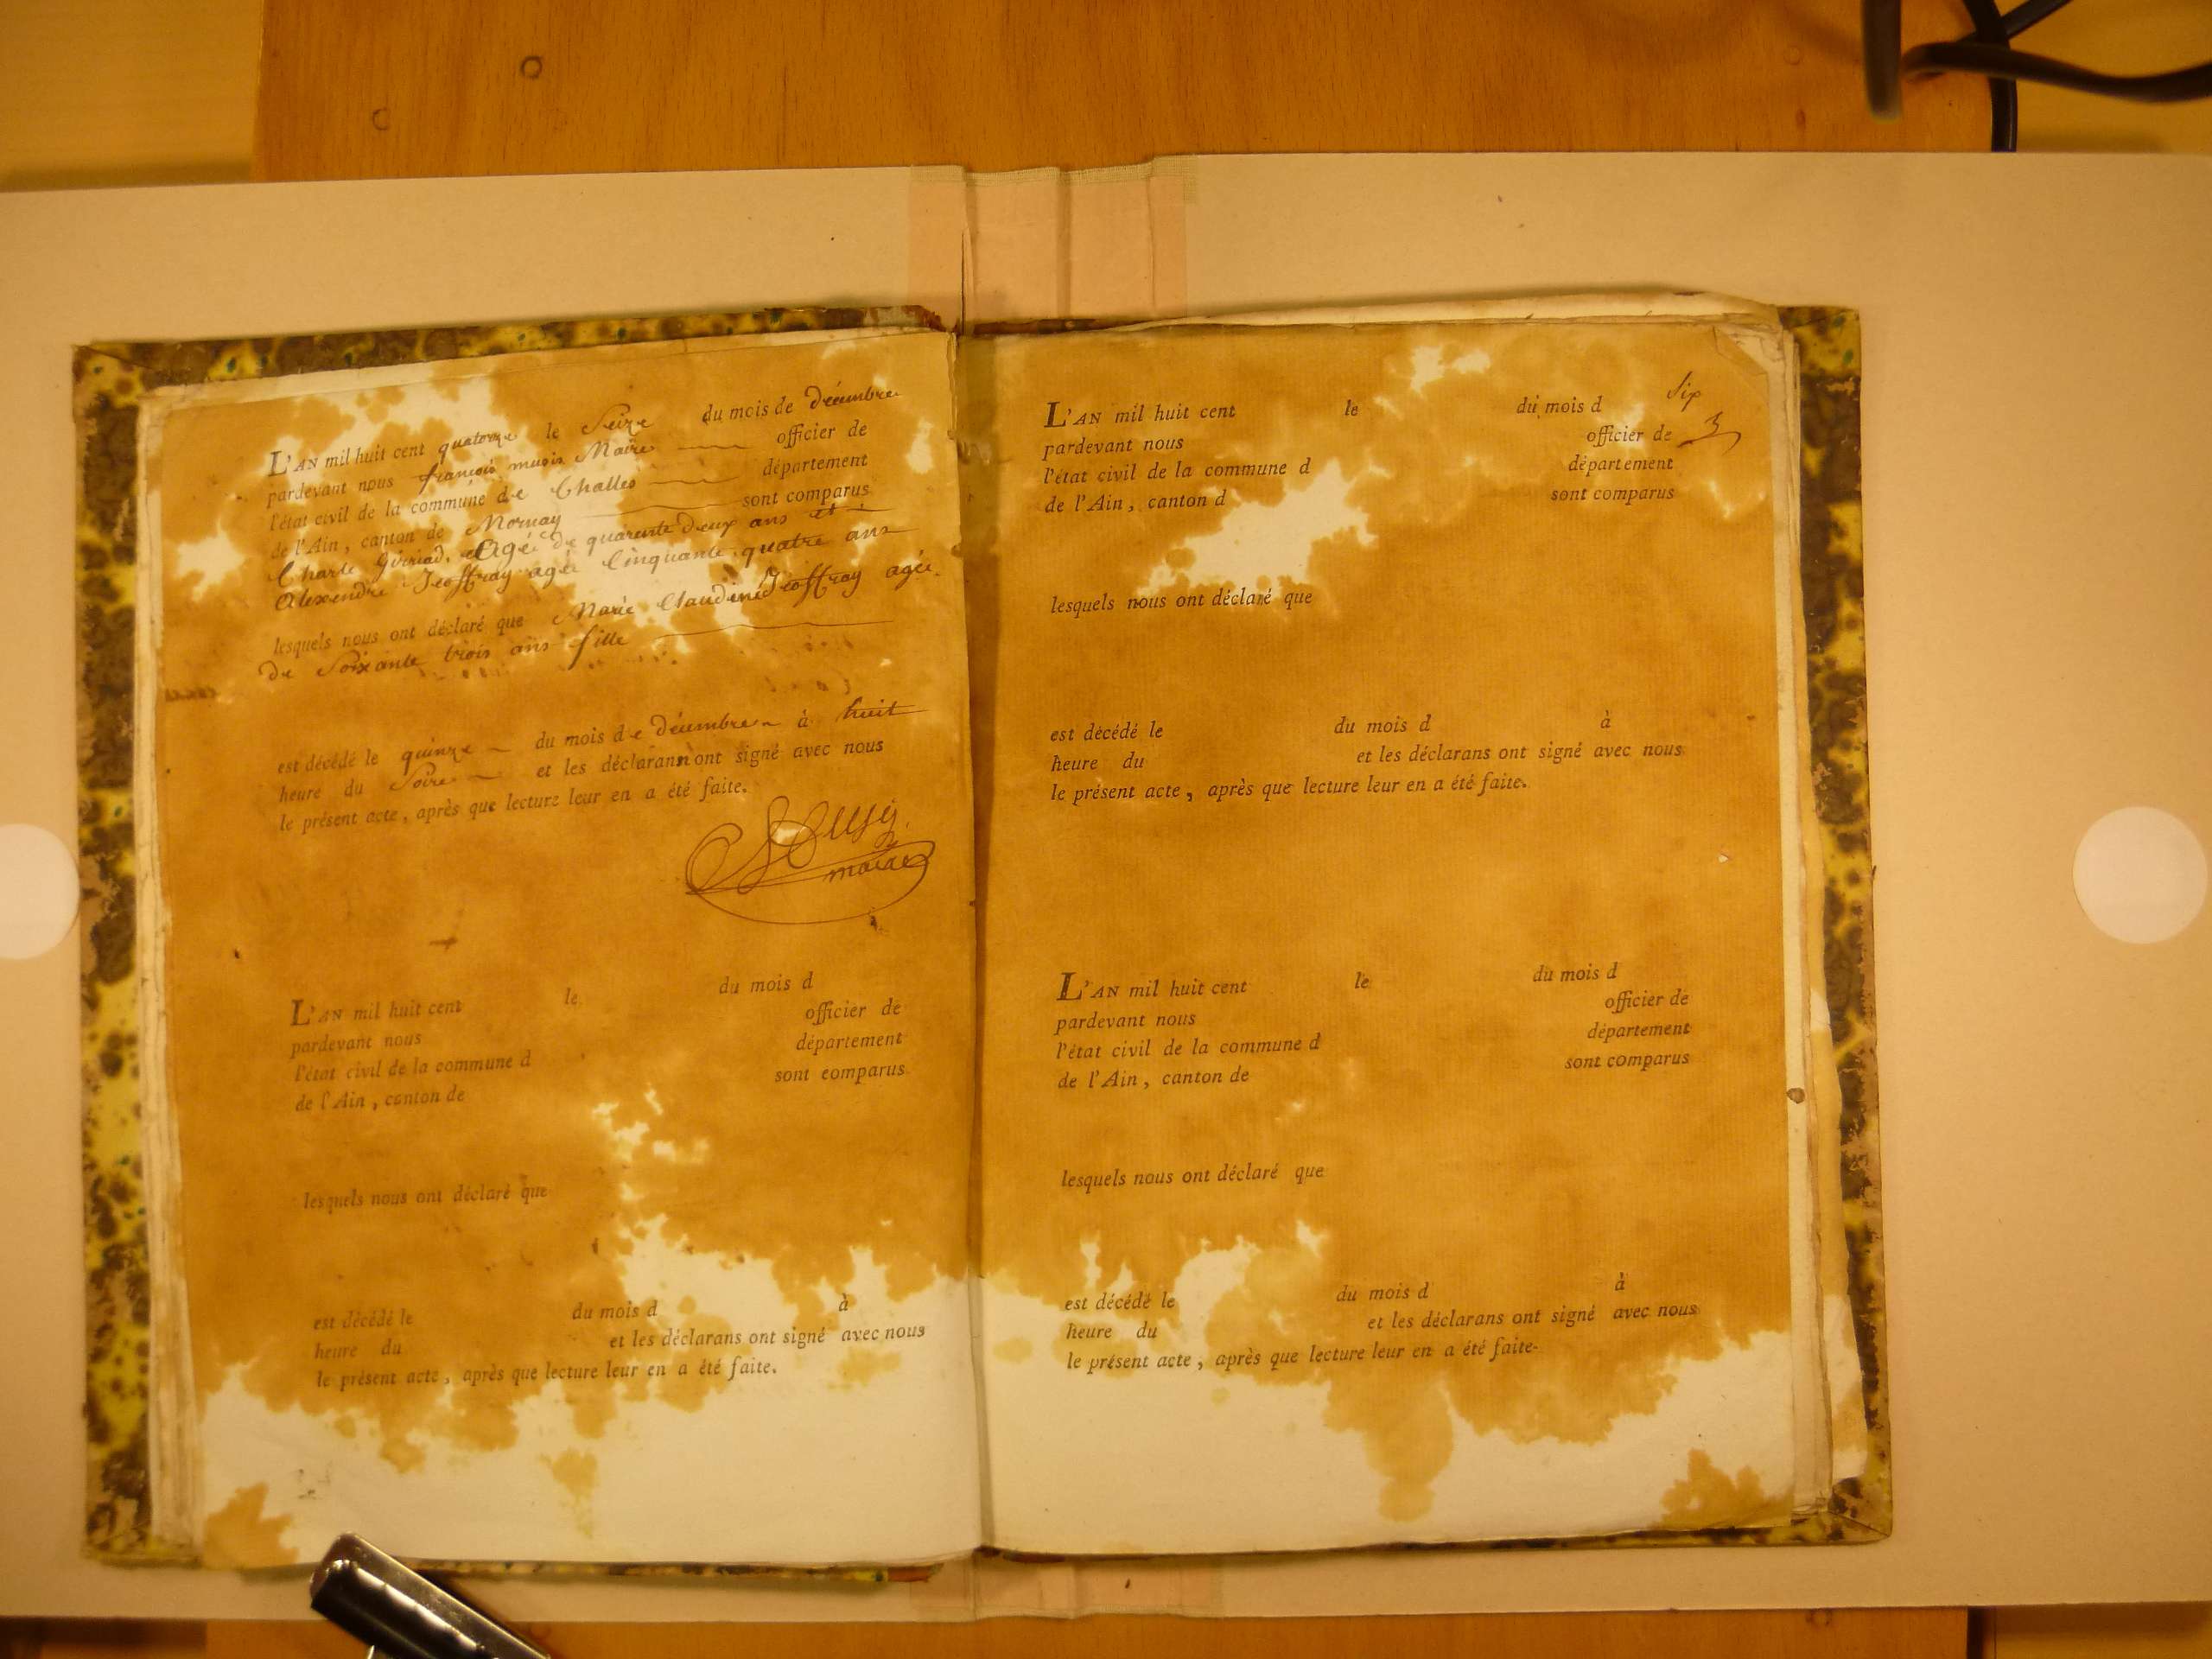 L'AN mil huit cent quatorze le Seize du mois de décembre
pardevant nous françois musix Maire officier de
l'état civil de la commune de Challes département
de l'Ain, canton de Mornay sont comparus
Charle Girriad. Agé de quarente deux ans et
Alexendre Jeoffray agée Cinquante quatre ans
lesquels nous ont déclaré que Marie Claudine Jeoffray agée
de Soixante trois ans fille
est décédé le quinze du mois de décembre à huit
heure du Soire et les déclarans n ont signé avec nous
le présent acte, après que lecture leur en a été faite.
maire
L'AN mil huit cent le du mois d
pardevant nous officier de
l'état civil de la commune d département
de l'Ain, canton de sont comparus
lesquels nous ont déclaré que
est décédé le du mois d à
heure du et les déclarans ont signé avec nous
le présent acte, après que lecture leur en a été faite.
Six
L'AN mil huit cent le du mois d
pardevant nous officier de
l'état civil de la commune d département
de l'Ain, canton d sont comparus
lesquels nous ont déclaré que
est décédé le du mois d à
heure du et les déclarans ont signé avec nous
le présent acte, après que lecture leur en a été faite.
L'AN mil huit cent le du mois d
pardevant nous officier de
l'état civil de la commune d département
de l'Ain, canton de sont comparus
lesquels nous ont déclaré que
est décédé le du mois d à
heure du et les déclarans ont signé avec nous
le présent acte, après que lecture leur en a été faite.